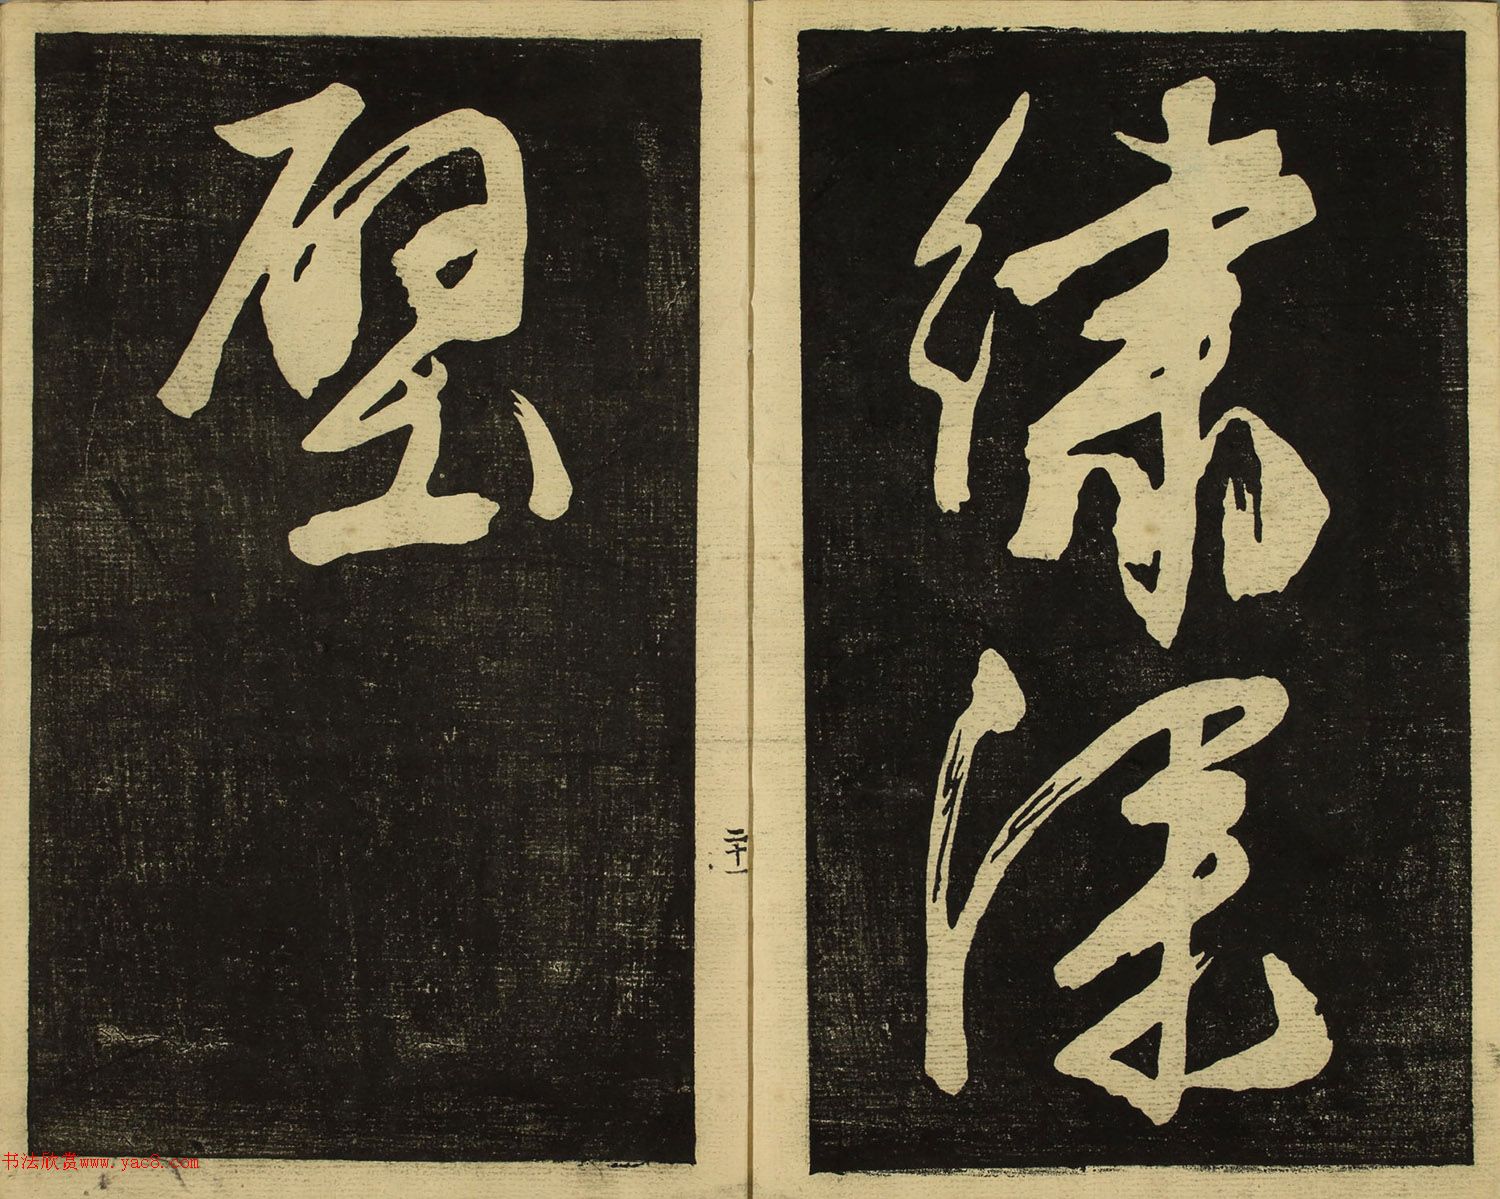 繡
壓
二十一
书法欣赏www.yac8.com